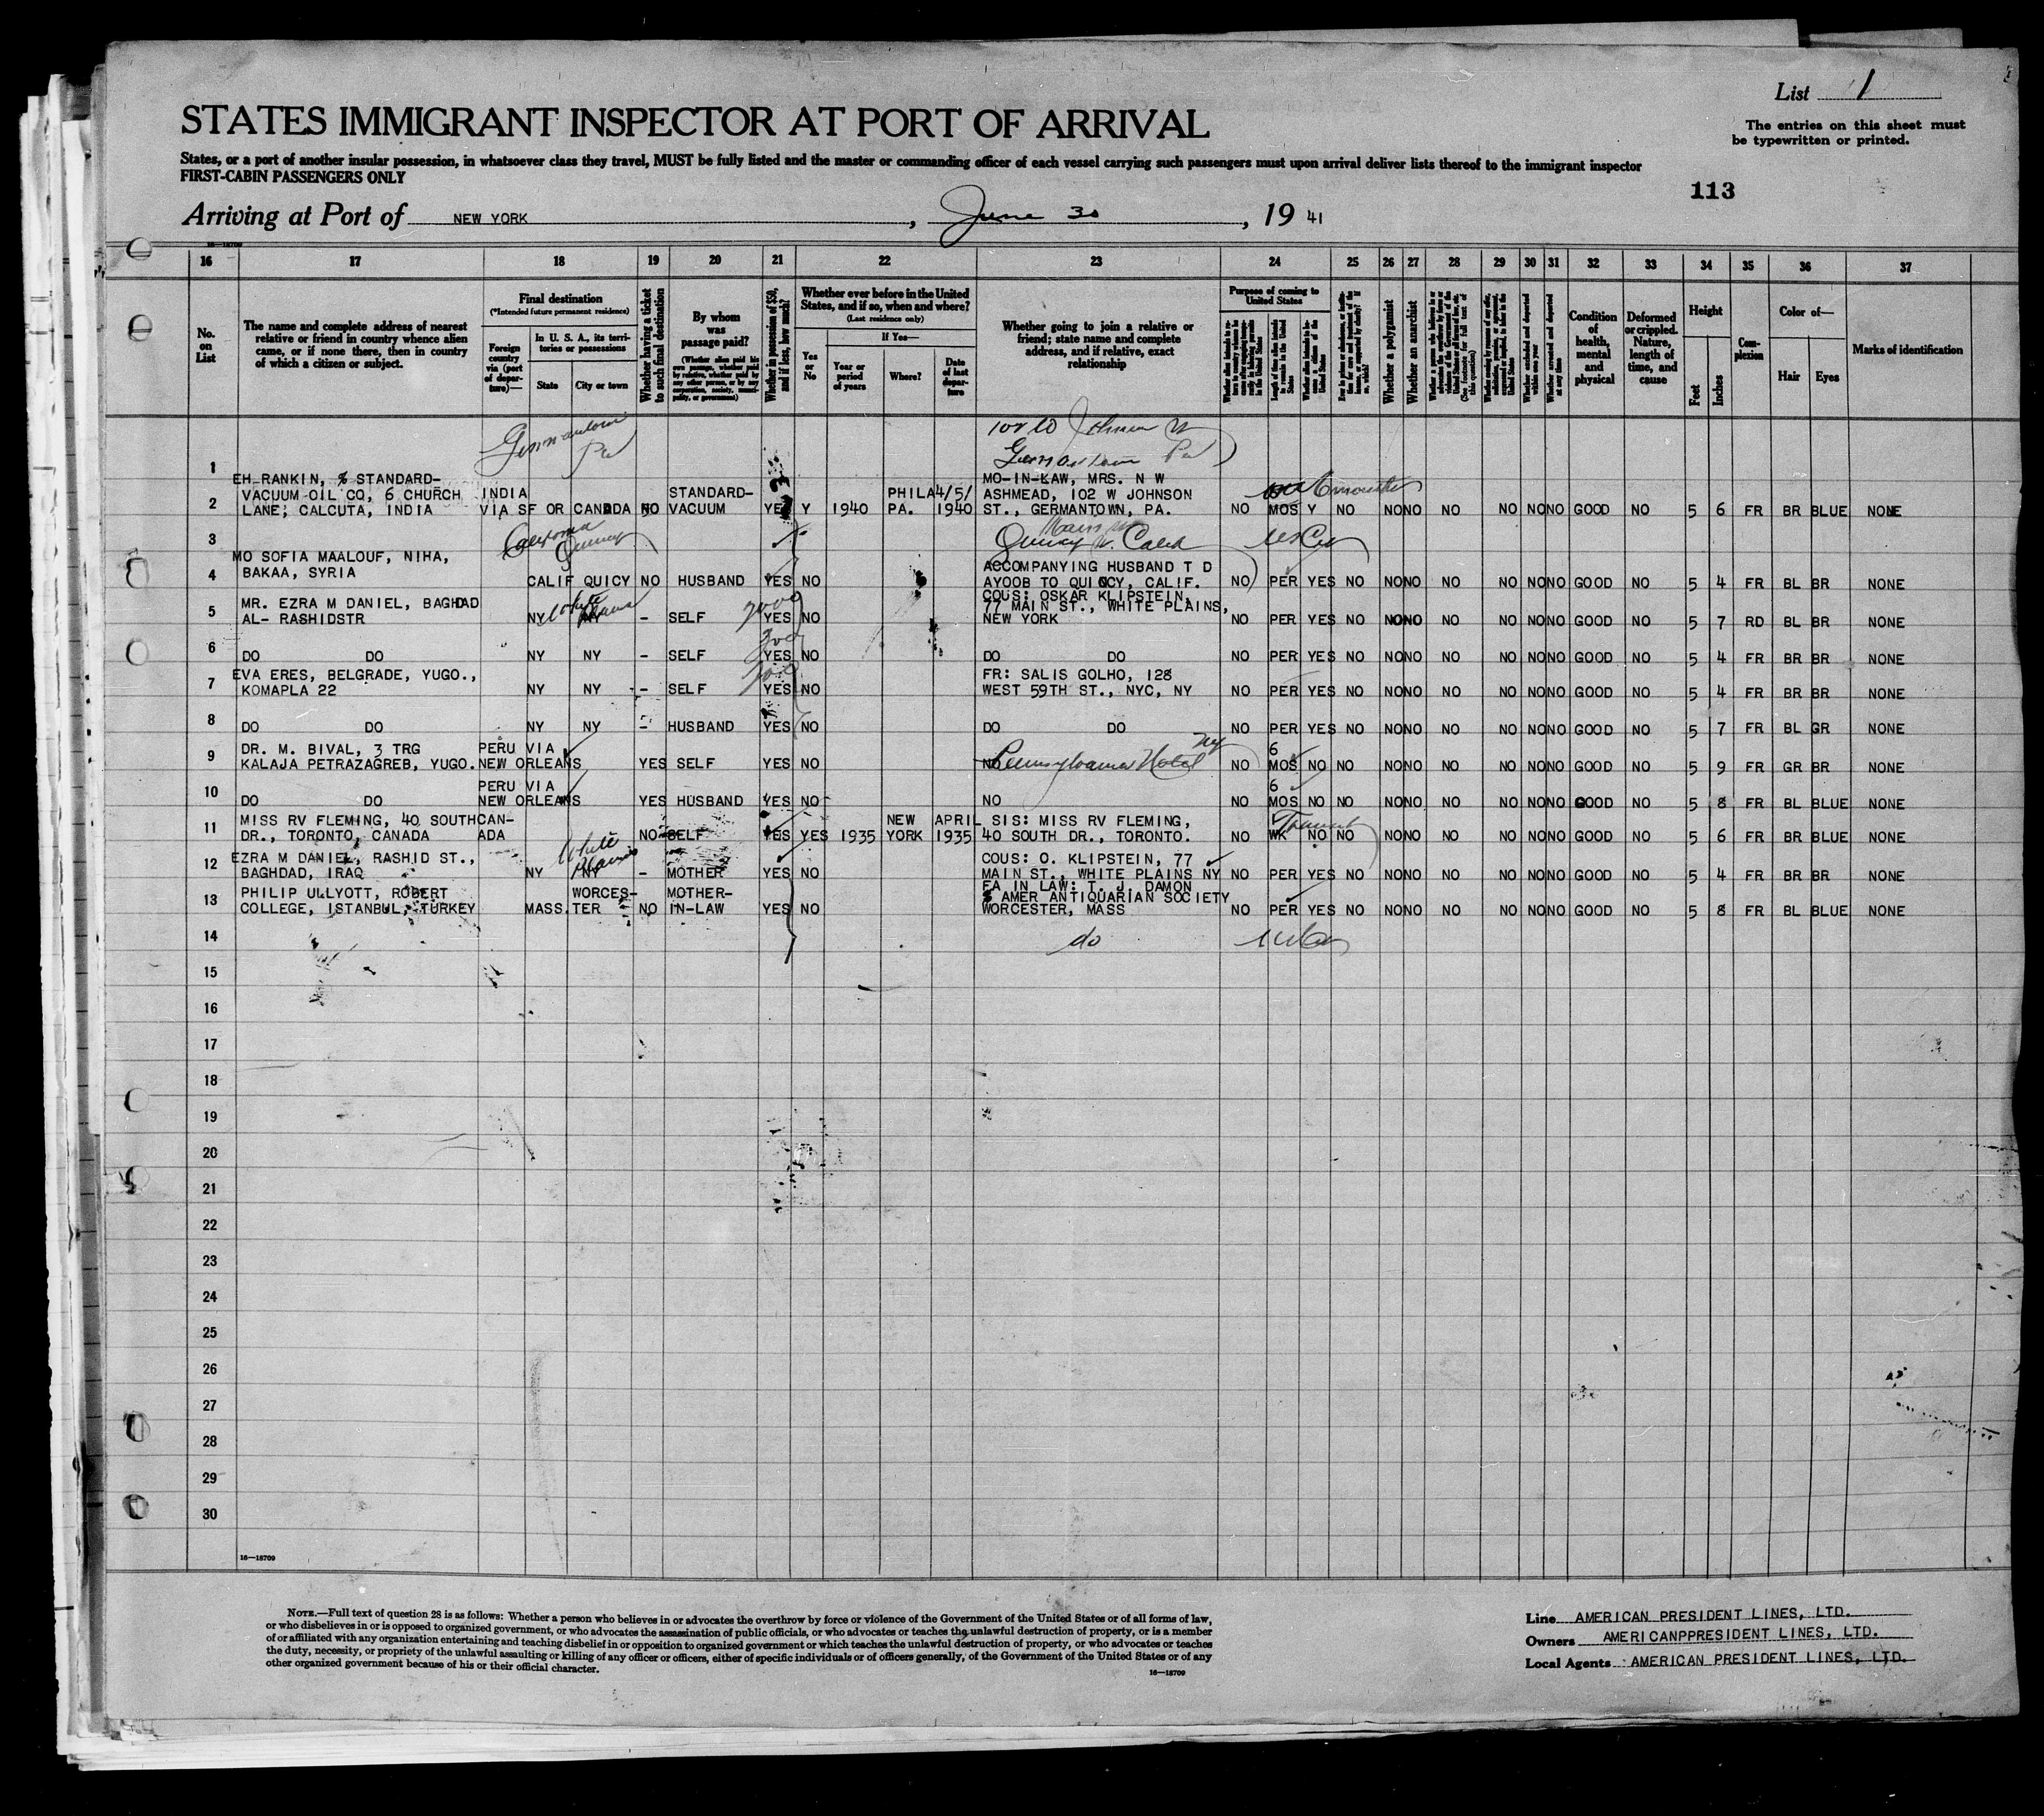 List 1
STATES IMMIGRANT INSPECTOR AT PORT OF ARRIVAL
The entries on this sheet must
be typewritten or printed.
States, or a port of another insular possession, in whatsoever class they travel, MUST be fully listed and the master or commanding officer of each vessel carrying such passengers must upon arrival deliver lists thereof to the immigrant inspector
FIRST-CABIN PASSENGERS ONLY
113
Arriving at Port of NEW YORK, June 30, 19 41
16—18709
16 17 18 19 20 21 22 23 24 25 26 27 28 29 30 31 32 33 34 35 36 37
No. on List
The name and complete address of nearest relative or friend in country whence alien came, or if none there, then in country of which a citizen or subject.
Final destination
(*Intended future permanent residence)
Foreign country via (port of departure)—
In U. S. A., its territories or possessions
State
City or town
Whether having a ticket to such final destination
By whom was passage paid?
(Whether alien paid his own passage, whether paid by relative, whether paid by any other person, or by any corporation, society, municipality, or government)
Whether in possession of $50, and if less, how much?
Whether ever before in the United States, and if so, when and where?
(Last residence only)
Yes or No
If Yes—
Year or period of years
Where?
Date of last departure
Whether going to join a relative or friend; state name and complete address, and if relative, exact relationship
Purpose of coming to United States
Length of time alien intends to remain in the United States
Whether alien intends to become a citizen of the United States
Whether a polygamist
Whether an anarchist
(See footnote for full text of this question)
Whether excluded and deported within one year
Whether arrested and deported at any time
Condition of health, mental and physical
Deformed or crippled. Nature, length of time, and cause
Height
Feet
Inches
Complexion
Color of—
Hair
Eyes
Marks of identification
1 Germantown Pa 102 W Johnson Germantown Pa
EH RANKIN, % STANDARD- MO-IN-KAW, MRS. N W
VACUUM OIL CO, 6 CHURCH INDIA STANDARD- PHILA 4/5/ ASHMEAD, 102 W JOHNSON 6 months
2 LANE; CALCUTA, INDIA VIA SF OR CANADA NO VACUUM YES Y 1940 PA. 1940 ST., GERMANTOWN, PA. NO MOS Y NO NO NO NO NO NO NO GOOD NO 5 6 FR BR BLUE NONE
3 California Quincy Quincy
MO SOFIA MAALOUF, NIHA, ACCOMPANYING HUSBAND T D
4 BAKAA, SYRIA CALIF QUICY NO HUSBAND YES NO AYOOB TO QUINCY, CALIF. NO PER YES NO NO NO NO NO NO NO GOOD NO 5 4 FR BL BR NONE
COUS: OSKAR KLIPSTEIN,
MR. EZRA M DANIEL, BAGHDAD White Plains 2000 77 MAIN ST., WHITE PLAINS,
5 AL- RASHIDSTR NY NY - SELF YES NO NEW YORK NO PER YES NO NO NO NO NO NO NO GOOD NO 5 7 RD BL BR NONE
6 DO DO NY NY - SELF 300 YES NO DO DO NO PER YES NO NO NO NO NO NO NO GOOD NO 5 4 FR BR BR NONE
EVA ERES, BELGRADE, YUGO., FR: SALIS GOLHO, 128
7 KOMAPLA 22 NY NY - SELF YES NO WEST 59TH ST., NYC, NY NO PER YES NO NO NO NO NO NO NO GOOD NO 5 4 FR BR BR NONE
8 DO DO NY NY - HUSBAND YES NO DO DO NO PER YES NO NO NO NO NO NO NO GOOD NO 5 7 FR BL GR NONE
DR. M. BIVAL, 3 TRG PERU VIA NY 6
9 KALAJA PETRAZAGREB, YUGO. NEW ORLEANS YES SELF YES NO NO Pennsylvania Hotel NO MOS NO NO NO NO NO NO NO NO GOOD NO 5 9 FR GR BR NONE
PERU VIA 6
10 DO DO NEW ORLEANS YES HUSBAND YES NO NO NO MOS NO NO NO NO NO NO NO NO GOOD NO 5 8 FR BL BLUE NONE
MISS RV FLEMING, 40 SOUTH CAN- NEW APRIL SIS: MISS RV FLEMING, Transit
11 DR., TORONTO, CANADA ADA NO SELF YES YES 1935 YORK 1935 40 SOUTH DR., TORONTO. NO WK NO NO NO NO NO NO NO NO GOOD NO 5 6 FR BR BLUE NONE
EZRA M DANIEL, RASHID ST., White Plains COUS: O. KLIPSTEIN, 77
12 BAGHDAD, IRAQ NY NY - MOTHER YES NO MAIN ST., WHITE PLAINS NY NO PER YES NO NO NO NO NO NO NO GOOD NO 5 4 FR BR BR NONE
FA IN LAW: T. J. DAMON
PHILIP ULLYOTT, ROBERT WORCES- MOTHER- % AMER ANTIQUARIAN SOCIETY
13 COLLEGE, ISTANBUL, TURKEY MASS. TER NO IN-LAW YES NO WORCESTER, MASS NO PER YES NO NO NO NO NO NO NO GOOD NO 5 8 FR BL BLUE NONE
14 do
15
16
17
18
19
20
21
22
23
24
25
26
27
28
29
30
16—18709
NOTE.—Full text of question 28 is as follows: Whether a person who believes in or advocates the overthrow by force or violence of the Government of the United States or of all forms of law,
or who disbelieves in or is opposed to organized government, or who advocates the assassination of public officials, or who advocates or teaches the unlawful destruction of property, or is a member
of or affiliated with any organization entertaining and teaching disbelief in or opposition to organized government or which teaches the unlawful destruction of property, or who advocates or teaches
the duty, necessity, or propriety of the unlawful assaulting or killing of any officer or officers, either of specific individuals or of officers generally, of the Government of the United States or of any
other organized government because of his or their official character.
16—18709
Line AMERICAN PRESIDENT LINES, LTD.
Owners AMERICANPPRESIDENT LINES, LTD.
Local Agents AMERICAN PRESIDENT LINES, LTD.